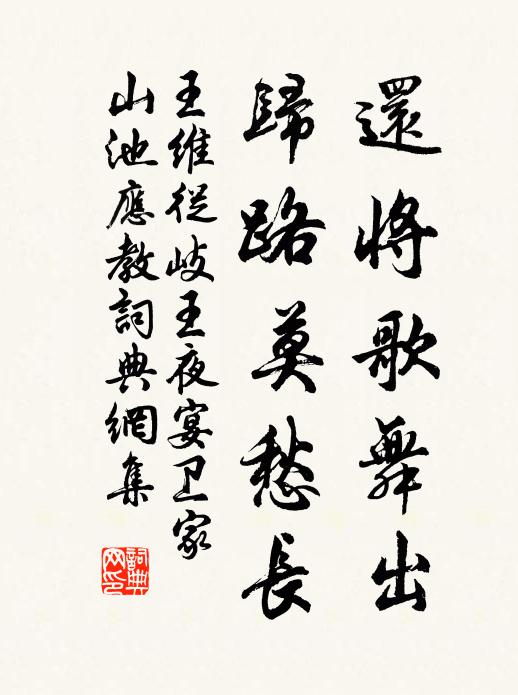 還將歌舞出
歸路莫愁長
王維從岐王夜宴卫家
山池應教詞典網集
詞典网印